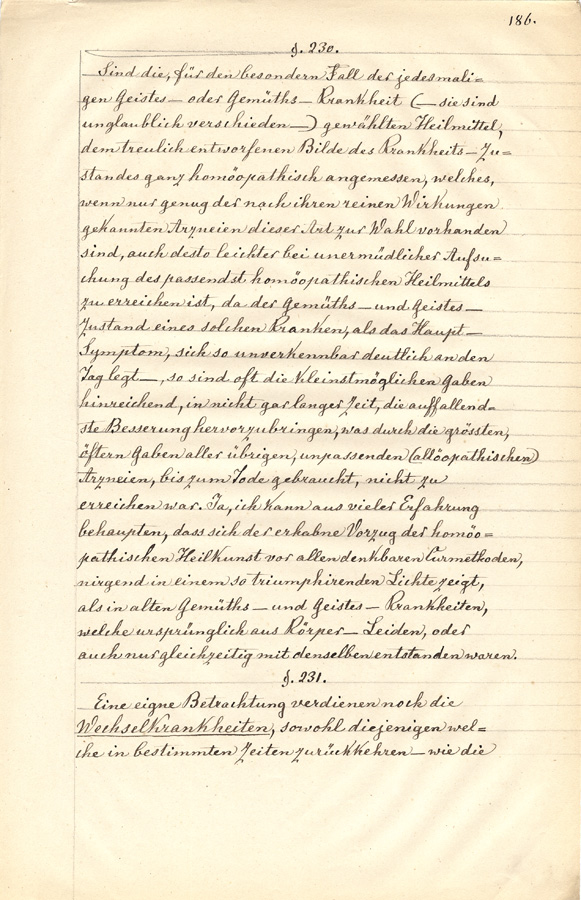 186.
§. 230.
Sind die, für den besondern Fall der jedesmali=
gen Geistes- oder Gemüths-Krankheit (- sie sind
unglaublich verschieden -) gewählten Heilmittel,
dem treulich entworfenen Bilde des Krankheits-Zu=
standes ganz homöopathisch angemessen, welches,
wenn nur genug der nach ihren reinen Wirkungen
gekannten Arzneien dieser Art zur Wahl vorhanden
sind, auch desto leichter bei unermüdlicher Aufsu=
chung des passendst homöopathischen Heilmittels
zu erreichen ist, da der Gemüths- und Geistes-
Zustand eines solchen Kranken, als das Haupt-
Symptom, sich so unverkennbar deutlich an den
Tag legt -, so sind oft die kleinstmöglichen Gaben
hinreichend, in nicht gar langer Zeit, die auffallend=
ste Besserung hervorzubringen, was durch die grössten,
öftern Gaben aller übrigen, unpassenden (allöopathischen)
Arzneien, bis zum Tode gebraucht, nicht zu
erreichen war. Ja, ich kann aus vieler Erfahrung
behaupten, dass sich der erhabne Vorzug der homöo=
pathischen Heilkunst vor allen denkbaren Curmethoden,
nirgend in einem so triumphirenden Lichte zeigt,
als in alten Gemüths- und Geistes-Krankheiten,
welche ursprünglich aus Körper-Leiden, oder
auch nur gleichzeitig mit denselben entstanden waren.
§. 231.
Eine eigne Betrachtung verdienen noch die
Wechselkrankheiten, sowohl diejenigen wel=
che in bestimmten Zeiten zurückkehren - wie die